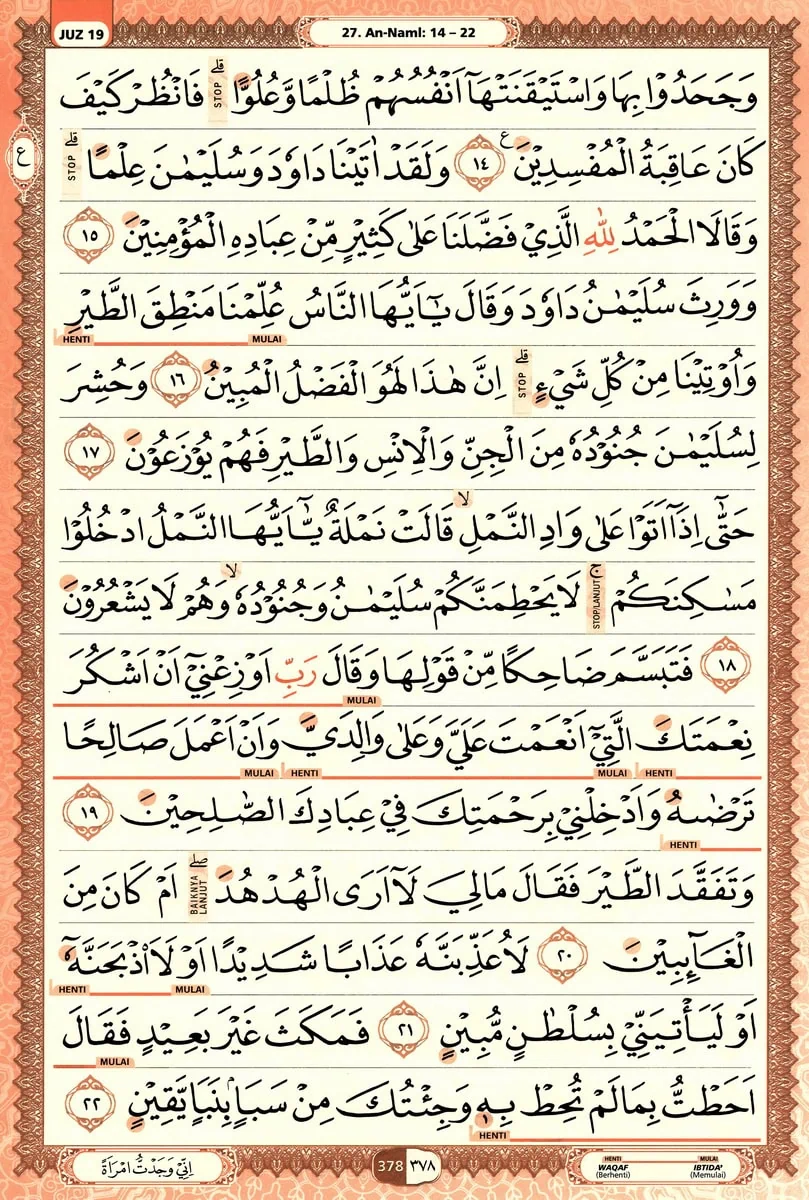 JUZ 19
27. An-Naml: 14 – 22
وَجَحَدُوْا بِهَا وَاسْتَيْقَنَتْهَآ اَنْفُسُهُمْ ظُلْمًا وَّعُلُوًّاۗ STOP فَانْظُرْ كَيْفَ
ع
كَانَ عَاقِبَةُ الْمُفْسِدِيْنَ ࣖ ١٤ وَلَقَدْ اٰتَيْنَا دَاوٗدَ وَسُلَيْمٰنَ عِلْمًاۗ STOP
وَقَالَا الْحَمْدُ لِلّٰهِ الَّذِيْ فَضَّلَنَا عَلٰى كَثِيْرٍ مِّنْ عِبَادِهِ الْمُؤْمِنِيْنَ ١٥
وَوَرِثَ سُلَيْمٰنُ دَاوٗدَ وَقَالَ يٰٓاَيُّهَا النَّاسُ عُلِّمْنَا مَنْطِقَ الطَّيْرِ
MULAI HENTI
وَاُوْتِيْنَا مِنْ كُلِّ شَيْءٍۗ STOP اِنَّ هٰذَا لَهُوَ الْفَضْلُ الْمُبِيْنُ ١٦ وَحُشِرَ
لِسُلَيْمٰنَ جُنُوْدُهٗ مِنَ الْجِنِّ وَالْاِنْسِ وَالطَّيْرِ فَهُمْ يُوْزَعُوْنَ ١٧
حَتّٰٓى اِذَآ اَتَوْا عَلٰى وَادِ النَّمْلِۙ قَالَتْ نَمْلَةٌ يّٰٓاَيُّهَا النَّمْلُ ادْخُلُوْا
مَسٰكِنَكُمْۚ STOP/LANJUT لَا يَحْطِمَنَّكُمْ سُلَيْمٰنُ وَجُنُوْدُهٗۙ وَهُمْ لَا يَشْعُرُوْنَ
١٨ فَتَبَسَّمَ ضَاحِكًا مِّنْ قَوْلِهَا وَقَالَ رَبِّ اَوْزِعْنِيْٓ اَنْ اَشْكُرَ
MULAI
نِعْمَتَكَ الَّتِيْٓ اَنْعَمْتَ عَلَيَّ وَعَلٰى وَالِدَيَّ وَاَنْ اَعْمَلَ صَالِحًا
HENTI MULAI HENTI MULAI
تَرْضٰىهُ وَاَدْخِلْنِيْ بِرَحْمَتِكَ فِيْ عِبَادِكَ الصّٰلِحِيْنَ ١٩
HENTI
وَتَفَقَّدَ الطَّيْرَ فَقَالَ مَا لِيَ لَآ اَرَى الْهُدْهُدَۖ BAIKNYA LANJUT اَمْ كَانَ مِنَ
الْغَاۤىِٕبِيْنَ ٢٠ لَاُعَذِّبَنَّهٗ عَذَابًا شَدِيْدًا اَوْ لَاَا۟ذْبَحَنَّهٗٓ
MULAI HENTI
اَوْ لَيَأْتِيَنِّيْ بِسُلْطٰنٍ مُّبِيْنٍ ٢١ فَمَكَثَ غَيْرَ بَعِيْدٍ فَقَالَ
MULAI
اَحَطْتُّ بِمَا لَمْ تُحِطْ بِهٖ وَجِئْتُكَ مِنْ سَبَاٍۢ بِنَبَاٍ يَّقِيْنٍ ٢٢
HENTI
اِنِّيْ وَجَدْتُّ امْرَاَةً
378 ٣٧٨
HENTI WAQAF (Berhenti)
MULAI IBTIDA' (Memulai)